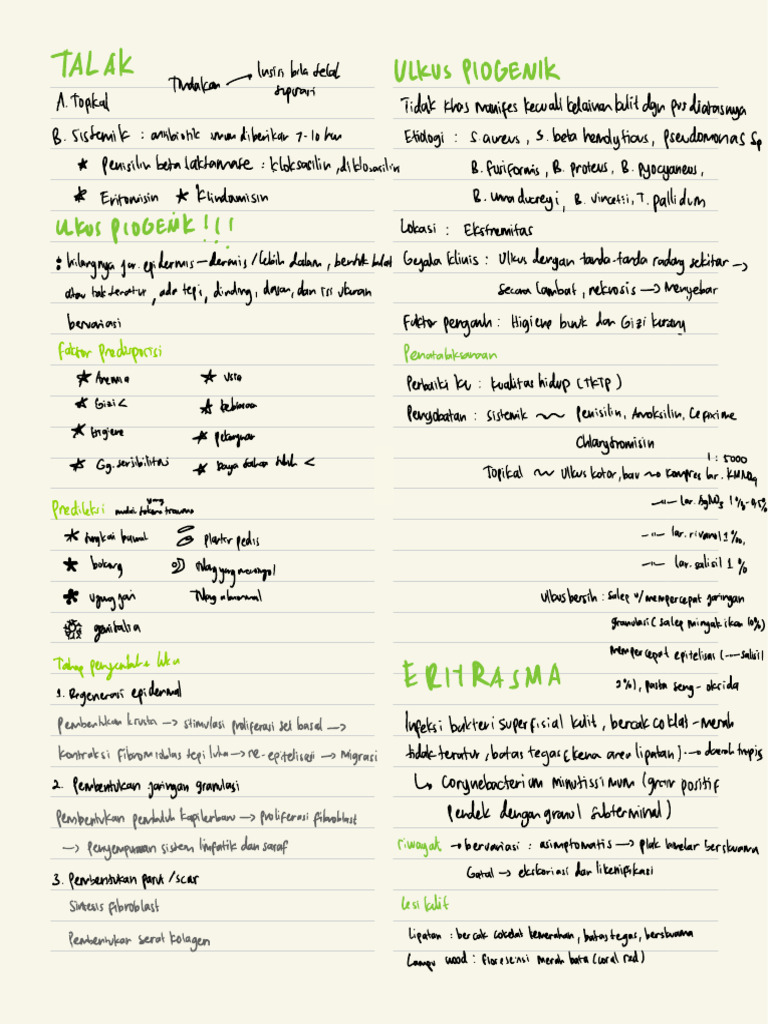 TALAK
Tindakan → Insisi bila telah
supurasi
A. Topikal
B. Sistemik : antibiotik umum diberikan 7-10 hari
★ Penisilin beta laktamase : kloksasilin, dikloksasilin
★ Eritomisin ★ Klindamisin
ULKUS PIOGENIK!!!
: hilangnya jar. epidermis – dermis / lebih dalam, bentuk bulat
atau tak teratur, ada tepi, dinding, dasar, dan isi ukuran
bervariasi
Faktor Predisposisi
★ Anemia ★ Usia
★ Gizi < ★ kebiasaan
★ Higiene ★ Pekerjaan
★ Gg. sensibilitas ★ Daya tahan tubuh <
Predileksi mudah terkena trauma
yang
★ tungkai bawah plantar pedis
★ bokong Tulang yang menonjol
★ ujung jari Tulang abnormal
genitalia
Tahap penyembuhan luka
1. Regenerasi epidermal
Pembentukan krusta → stimulasi proliferasi sel basal →
kontraksi fibromioblas tepi luka → re-epitelisasi → Migrasi
2. Pembentukan jaringan granulasi
Pembentukan pembuluh kapiler baru → proliferasi fibroblast
→ Penyempurnaan sistem limfatik dan saraf
3. Pembentukan parut / scar
Sintesis fibroblast
Pembentukan serat kolagen
ULKUS PIOGENIK
Tidak khas manifes kecuali kelainan kulit dgn pus diatasnya
Etiologi : S. aureus, S. beta hemolyticus, Pseudomonas sp
B. fusiformis, B. proteus, B. pyocyaneus,
B. unna ducreyi, B. vincetii, T. pallidum
Lokasi : Ekstremitas
Gejala klinis : Ulkus dengan tanda-tanda radang sekitar →
secara lambat, nekrosis → Menyebar
Faktor pengaruh : Higiene buruk dan Gizi kurang
Penatalaksanaan
Perbaiki KU : kualitas hidup (TKTP)
Pengobatan : sistemik ~ Penisilin, Amoksilin, Cefixime
Chlarytromisin
1 : 5000
Topikal ~ Ulkus kotor, bau ~ kompres lar. KMNO4
—"— lar. AgNO3 1%-0,5%
—"— lar. rivanol 1‰,
—"— lar. salisil 1 %
Ulkus bersih : salep u/ mempercepat jaringan
granulasi (salep minyak ikan 10%)
mempercepat epitelisasi (---- salisil
2%), pasta seng-oksida
ERITRASMA
Infeksi bakteri superficial kulit, bercak coklat-merah
tidak teratur, batas tegas (kena area lipatan) → daerah tropis
↳ Corynebacterium minutissimum (gram positif
pendek dengan granul subterminal)
riwayat → bervariasi : asimptomatis → plak lamelar berskuama
Gatal → ekskoriasi dan likenifikasi
Lesi kulit
Lipatan : bercak cokelat kemerahan, batas tegas, berskuama
Lampu wood : floresensi merah bata (coral red)